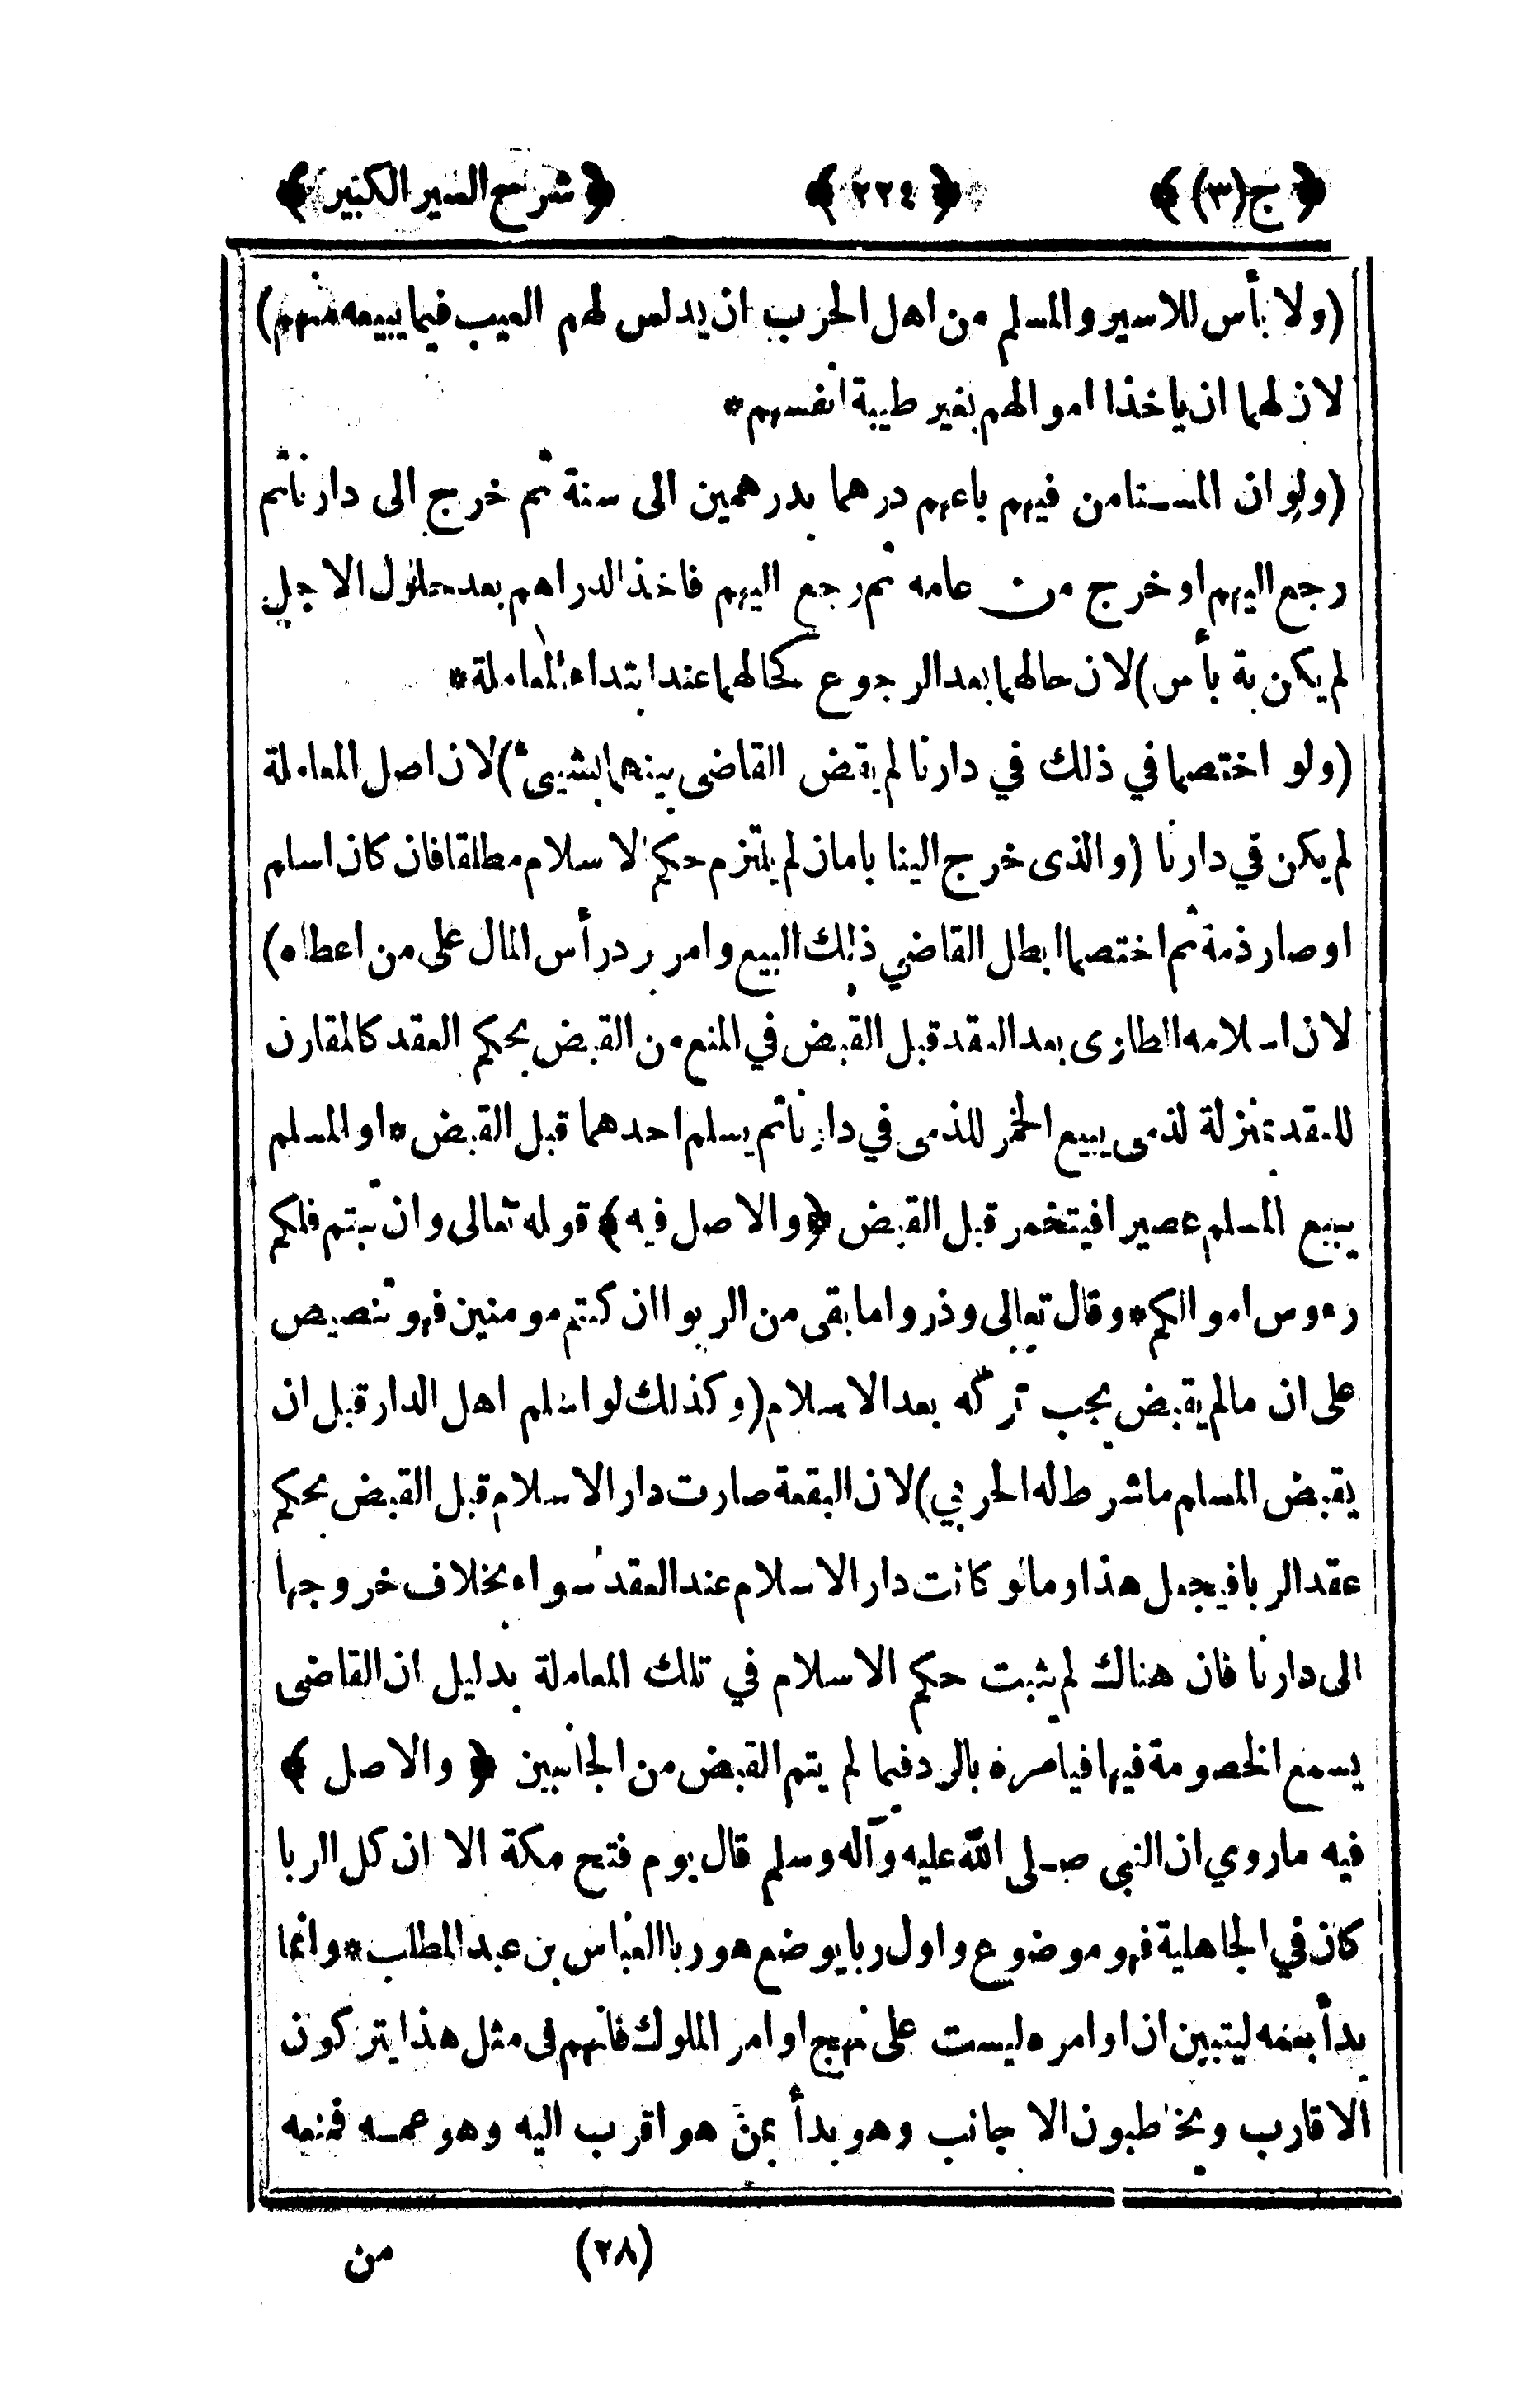 ﴿ج(٣)﴾ ﴿٢٢٤﴾ ﴿شرح السير الكبير﴾
(ولا بأس للاسير والمسلم من اهل الحرب ان يدلس لهم العيب فيما يبيعه منهم)
لان لهما ان ياخذا اموالهم بغير طيبة انفسهم*
(ولو ان المستامن فيهم باعهم درهما بدرهمين الى سنة ثم خرج الى دارنا ثم
رجع اليهم او خرج من عامه ثم رجع اليهم فاخذ الدراهم بعد حلول الاجل
لم يكن به بأس) لان حالهما بعد الرجوع كحالهما عند ابتداء المعاملة*
(ولو اختصما في ذلك في دارنا لم يقض القاضى بينهما بشيئ) لان اصل المعاملة
لم يكن في دارنا (والذى خرج الينا بامان لم يلتزم حكم الاسلام مطلقا فان كان اسلم
او صار ذمة ثم اختصما ابطل القاضي ذلك البيع وامر برد رأس المال على من اعطاه)
لان اسلامه الطارى بعد العقد قبل القبض في المنع من القبض بحكم العقد كالمقارن
للعقد بمنزلة لذمى يبيع الخمر للذمى في دارنا ثم يسلم احدهما قبل القبض* او المسلم
يبيع المسلم عصيرا فيتخمر قبل القبض ﴿والاصل فيه﴾ قوله تعالى وان تبتم فلكم
رءوس اموالكم* وقال تعالى وذروا ما بقى من الربوا ان كنتم مومنين فهو تنصيص
على ان مالم يقبض يجب تركه بعد الاسلام (وكذلك لو اسلم اهل الدار قبل ان
يقبض المسلم ما شرط له الحربي) لان البقعة صارت دار الاسلام قبل القبض بحكم
عقد الربا فيجعل هذا وما لو كانت دار الاسلام عند العقد سواء بخلاف خروجها
الى دارنا فان هناك لم يثبت حكم الاسلام في تلك المعاملة بدليل ان القاضى
يسمع الخصومة فيها فيامره بالرد فيما لم يتم القبض من الجانبين ﴿والاصل﴾
فيه ما روي ان النبى صلى الله عليه وآله وسلم قال يوم فتح مكة الا ان كل الربا
كان في الجاهلية فهو موضوع واول ربا يوضع هو ربا العباس بن عبد المطلب* وانما
بدأ بعمه ليتبين ان اوامره ليست على نهج اوامر الملوك فانهم فى مثل هذا يتركون
الاقارب ويخاطبون الاجانب وهو بدأ بمن هو اقرب اليه وهو عمه فمنعه
(٢٨) من